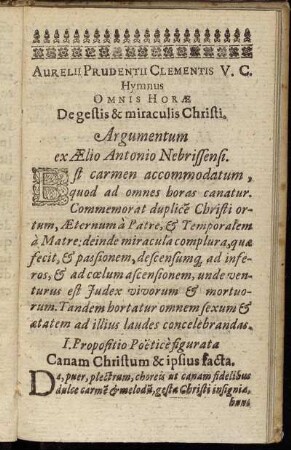 AURELII PRUDENTII CLEMENTIS V. C.
Hymnus
OMNIS HORÆ
De gestis & miraculis Christi.
Argumentum
ex Ælio Antonio Nebrissensi.
Est carmen accommodatum,
quod ad omnes horas canatur.
Commemorat duplicē Christi or-
tum, Æternum à Patre, & Temporalem
à Matre; deinde miracula complura, quæ
fecit, & passionem, descensumq, ad infe-
ros, & ad cœlum ascensionem, unde ven-
turus est Judex vivorum & mortuo-
rum. Tandem hortatur omnem sexum &
ætatem ad illius laudes concelebrandas.
I. Propositio Poëticè figurata
Canam Christum & ipsius facta.
Da, puer, plectrum, choreis ut canam fidelibus
dulce carmē & melodū, gesta Christi insignia,
hunc